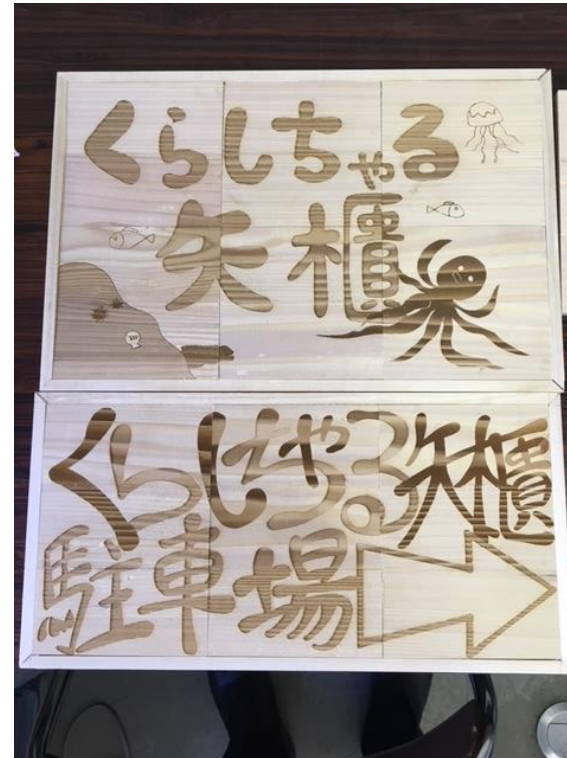 くらしちゃる
矢櫃
くらしちゃる矢櫃
駐車場